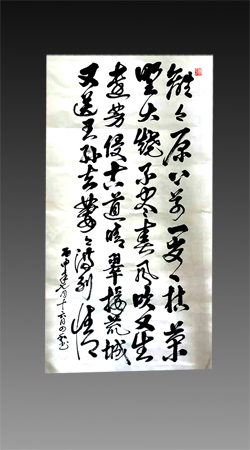 離々原上草一歲一枯榮
野火燒不盡春風吹又生
遠芳侵古道晴翠接荒城
又送王孫去萋々滿別情
丙申年七月十六日